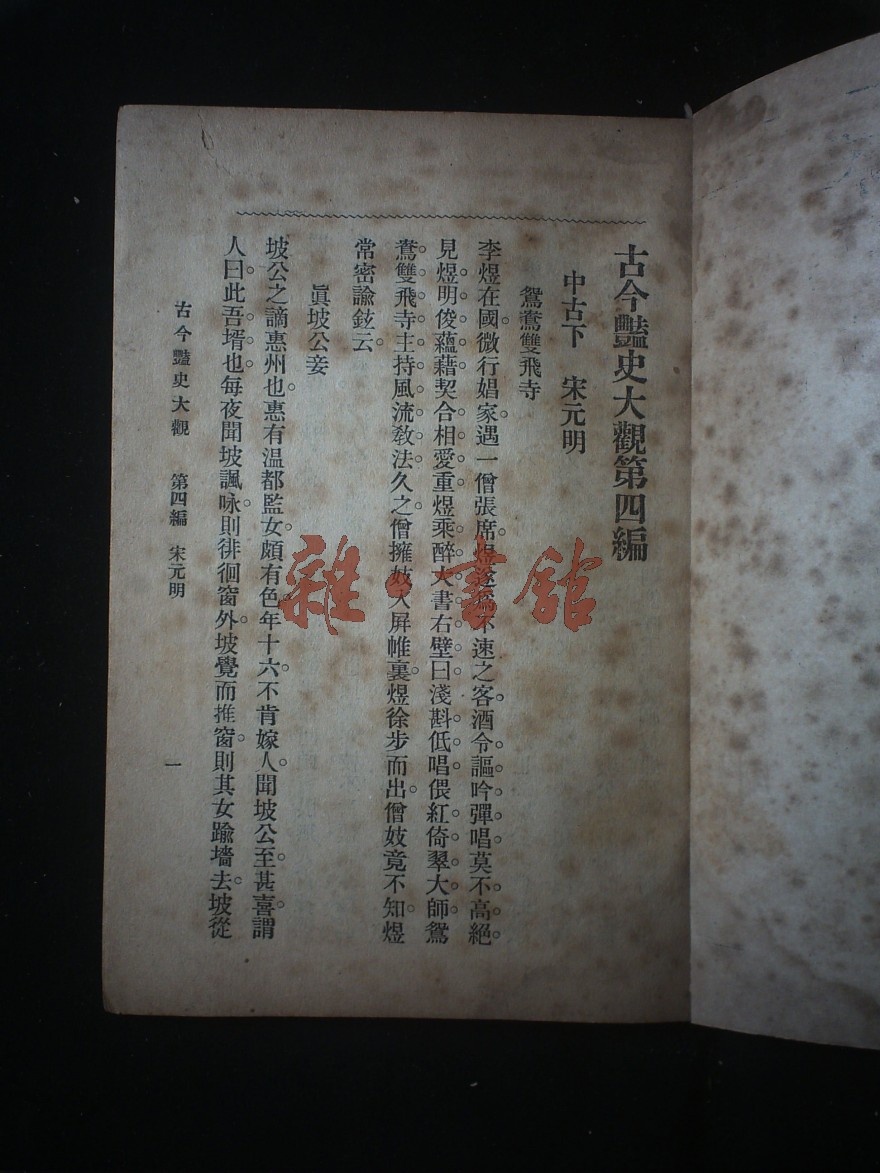 古今豔史大觀第四編
中古下　宋元明
鴛鴦雙飛寺
李煜在國。微行娼家。遇一僧張席。煜遂爲不速之客。酒令。謳吟。彈唱。莫不高絕。
見煜明俊蘊藉。契合相愛重。煜乘醉大書右壁曰。淺斟低唱。偎紅倚翠大師。鴛
鴦雙飛寺主。持風流敎法。久之。僧擁妓入屏帷裏。煜徐步而出。僧妓竟不知。煜
常密諭鉉云。
眞坡公妾
坡公之謫惠州也。惠有溫都監女。頗有色。年十六。不肯嫁人。聞坡公至。甚喜。謂
人曰。此吾壻也。每夜聞坡諷咏。則徘徊窗外。坡覺而推窗。則其女踰墻去。坡從
古今豔史大觀　第四編　宋元明
一
雜書館